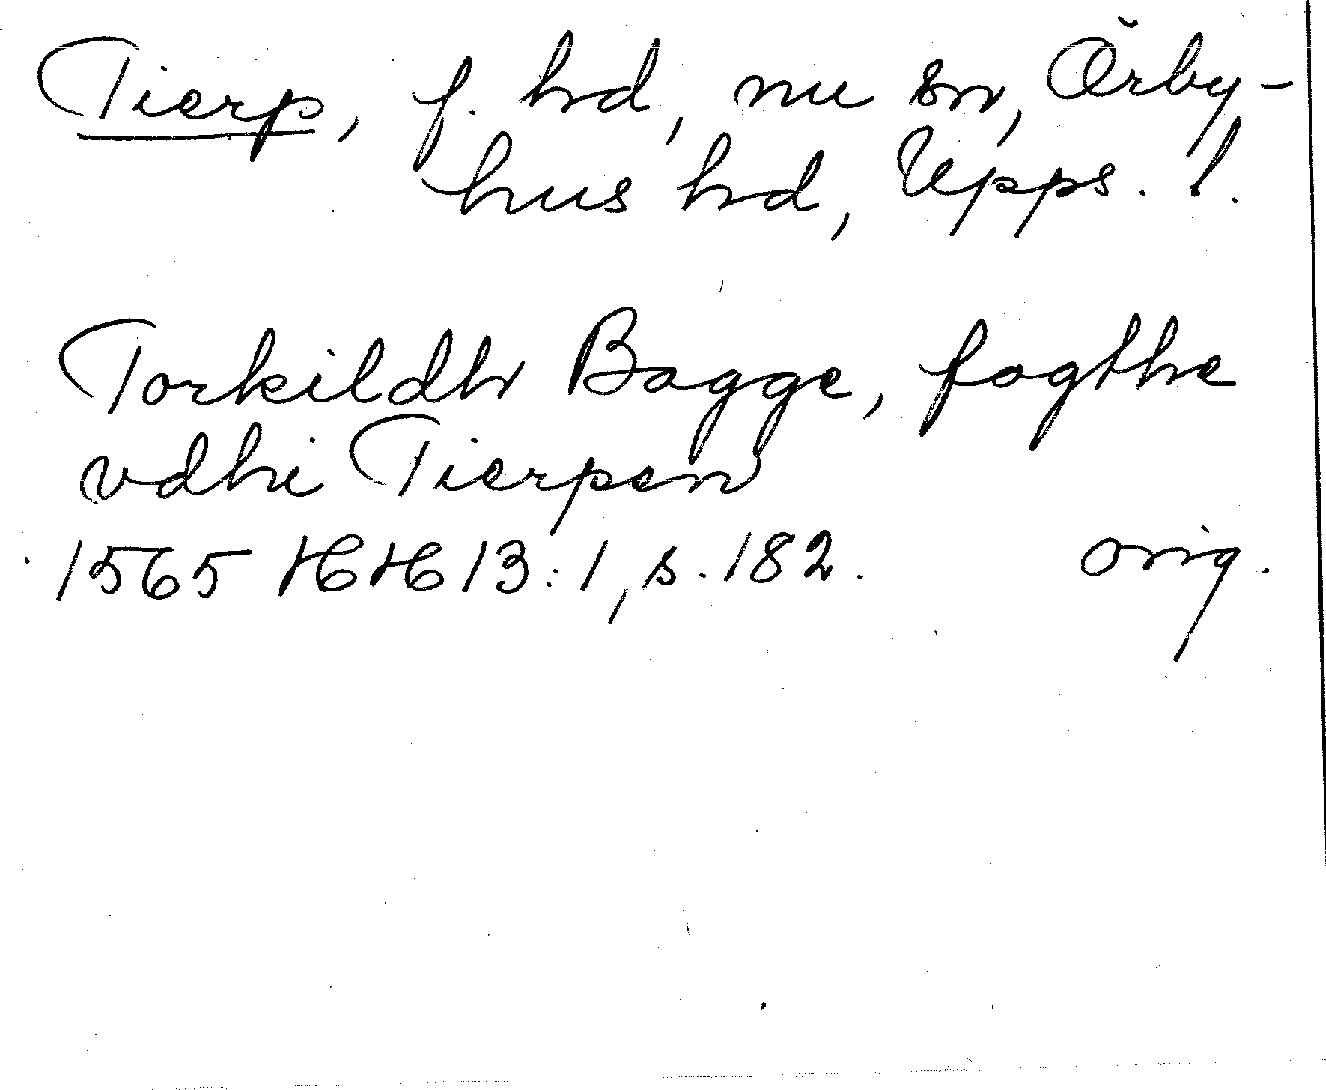 Tierp, f. hd, nu sn, Örby-
hus hd, Upps. l.
Torkildh Bagge, fogthe
vdhi Tierpen
1565 HH 13:1, s. 182. orig.